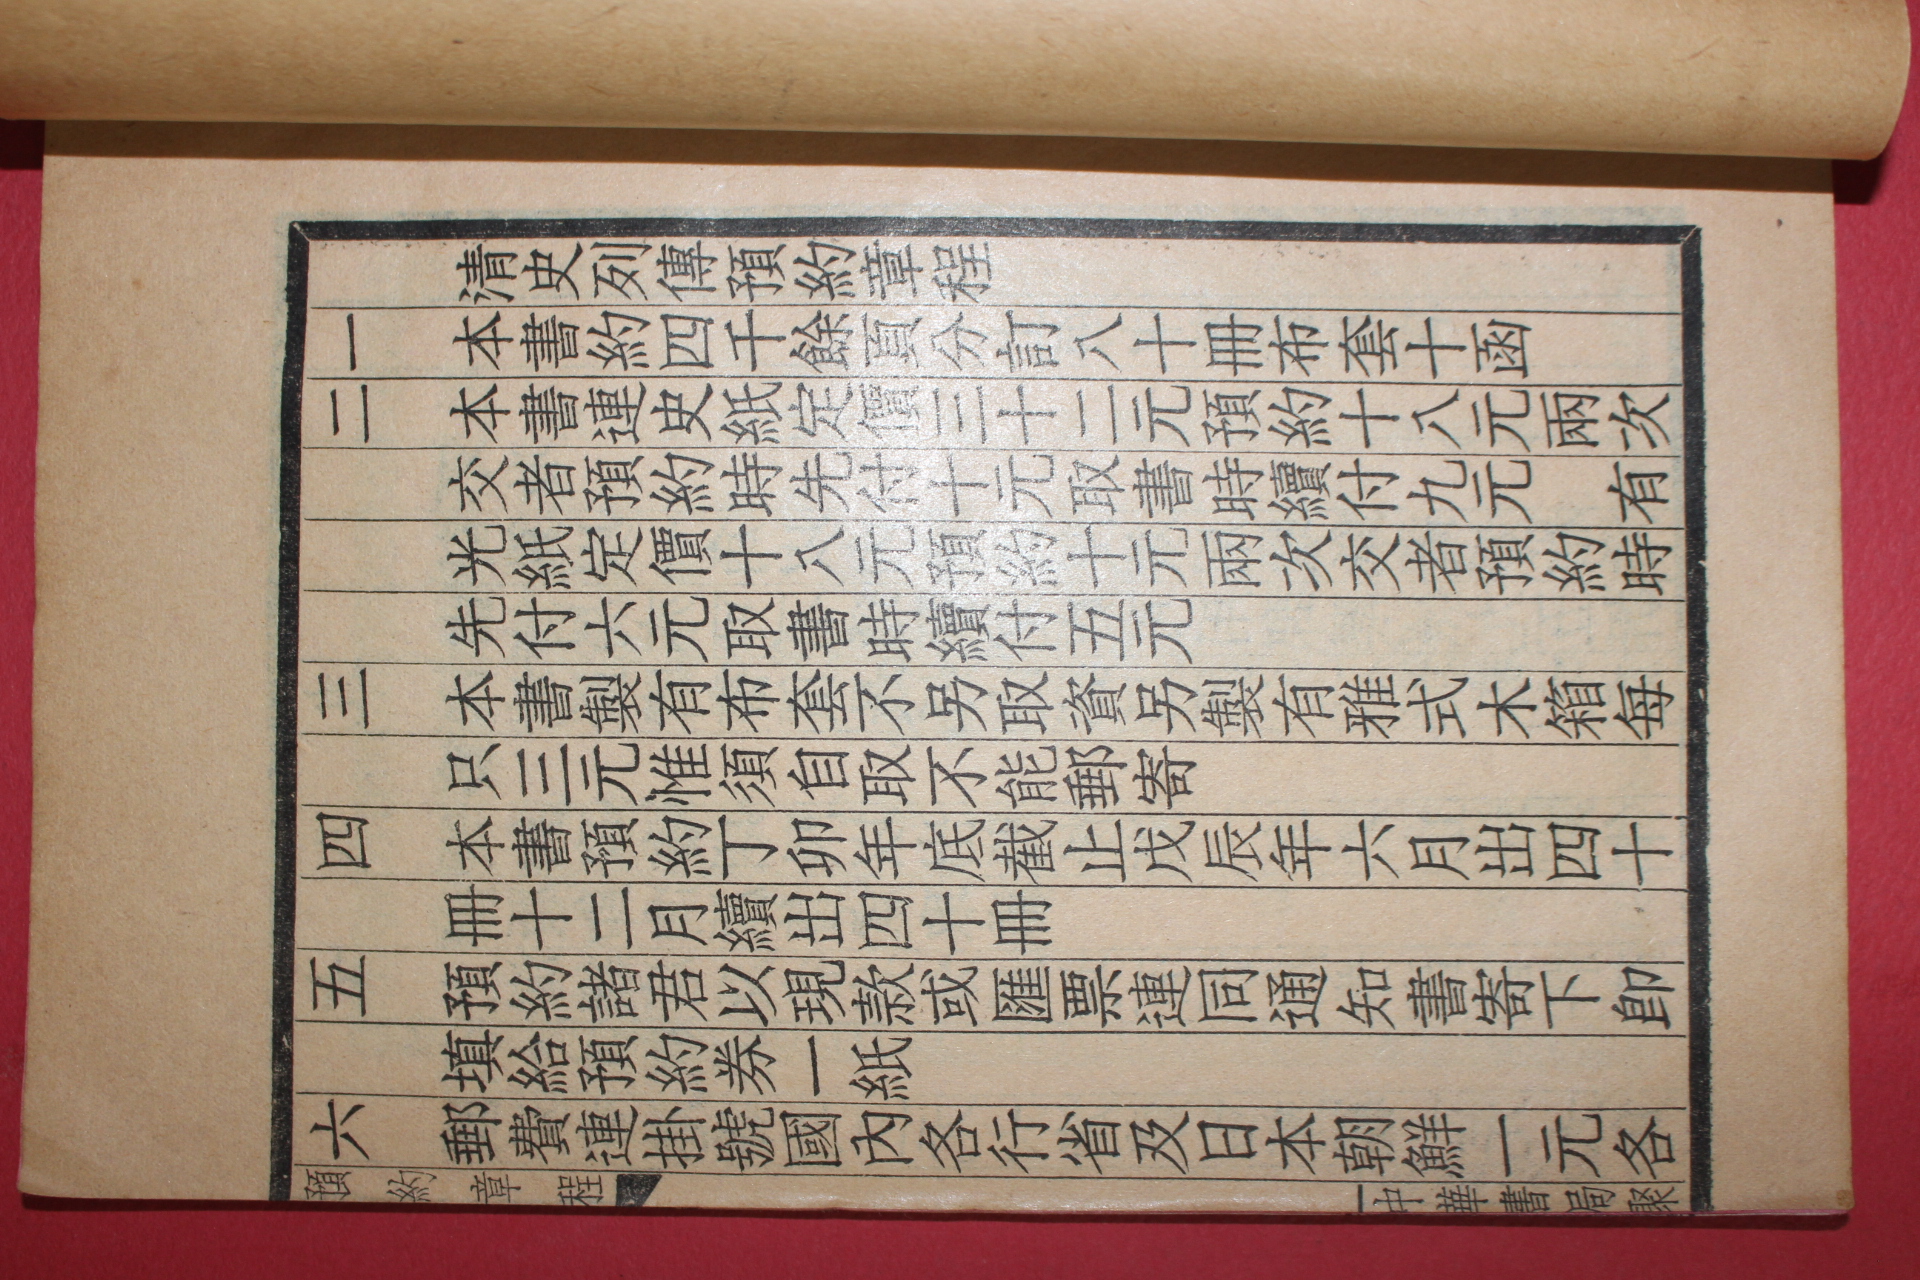 清史列傳預約章程
一 本書約四千餘頁分訂八十冊布套十函
二 本書連史紙定價三十二元預約十八元兩次
交者預約時先付十元取書時續付九元 有
光紙定價十八元預約十元兩次交者預約時
先付六元取書時續付五元
三 本書製有布套不另取資另製有雅式木箱每
只三元惟須自取不能郵寄
四 本書預約丁卯年底截止戊辰年六月出四十
冊十二月續出四十冊
五 預約諸君以現款或匯票連同通知書寄下卽
填給預約券一紙
六 郵費連掛號國內各行省及日本朝鮮一元各
預約章程 一 中華書局聚